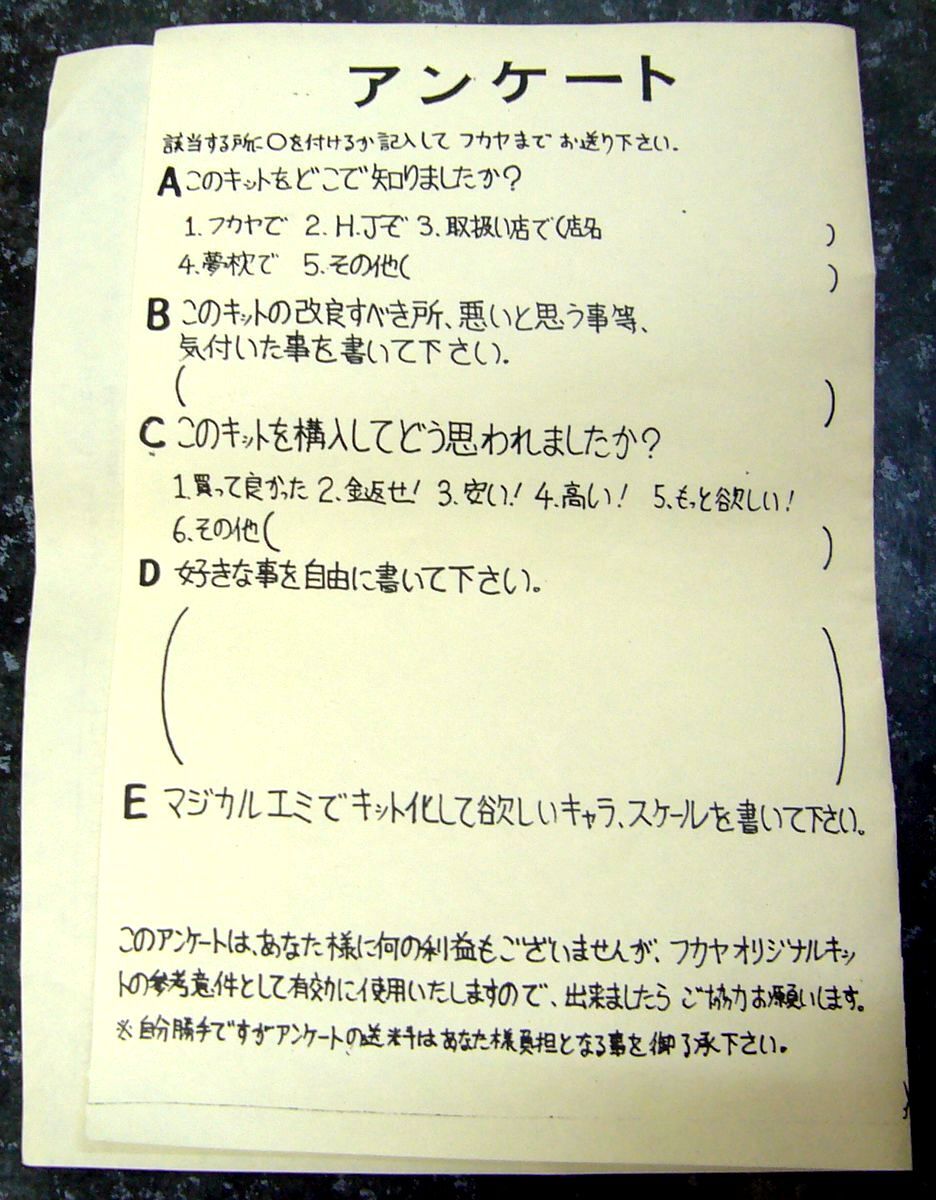 アンケート
該当する所に○を付けるか記入して フカヤまで お送り下さい.
A このキットをどこで知りましたか?
1. フカヤで 2. H.Jで 3. 取扱い店で(店名 )
4. 夢枕で 5. その他( )
B このキットの改良すべき所、悪いと思う事等、
気付いた事を書いて下さい.
( )
C このキットを構入してどう思われましたか?
1. 買って良かった 2. 金返せ! 3. 安い! 4. 高い! 5. もっと欲しい!
6. その他( )
D 好きな事を自由に書いて下さい。
( )
E マジカルエミでキット化して欲しいキャラ、スケールを書いて下さい。
このアンケートは、あなた様に何の利益もございませんが、フカヤオリジナルキッ
トの参考意件として有効に使用いたしますので、出来ましたら ご協力お願いします。
※自分勝手ですがアンケートの送料はあなた様負担となる事を御了承下さい。